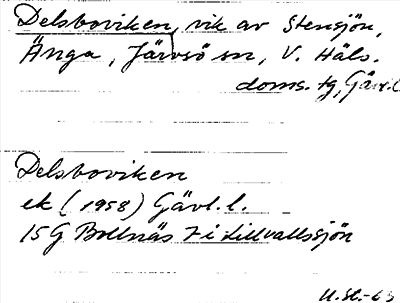 Delsboviken, vik av Stensjön,
Änga, Järvsö sn, V. Häls.
doms. tg, Gävl.l
Delsboviken
ek (1958) Gävl. l.
15G Bollnäs 7 i Lillvallssjön
U.St.-63